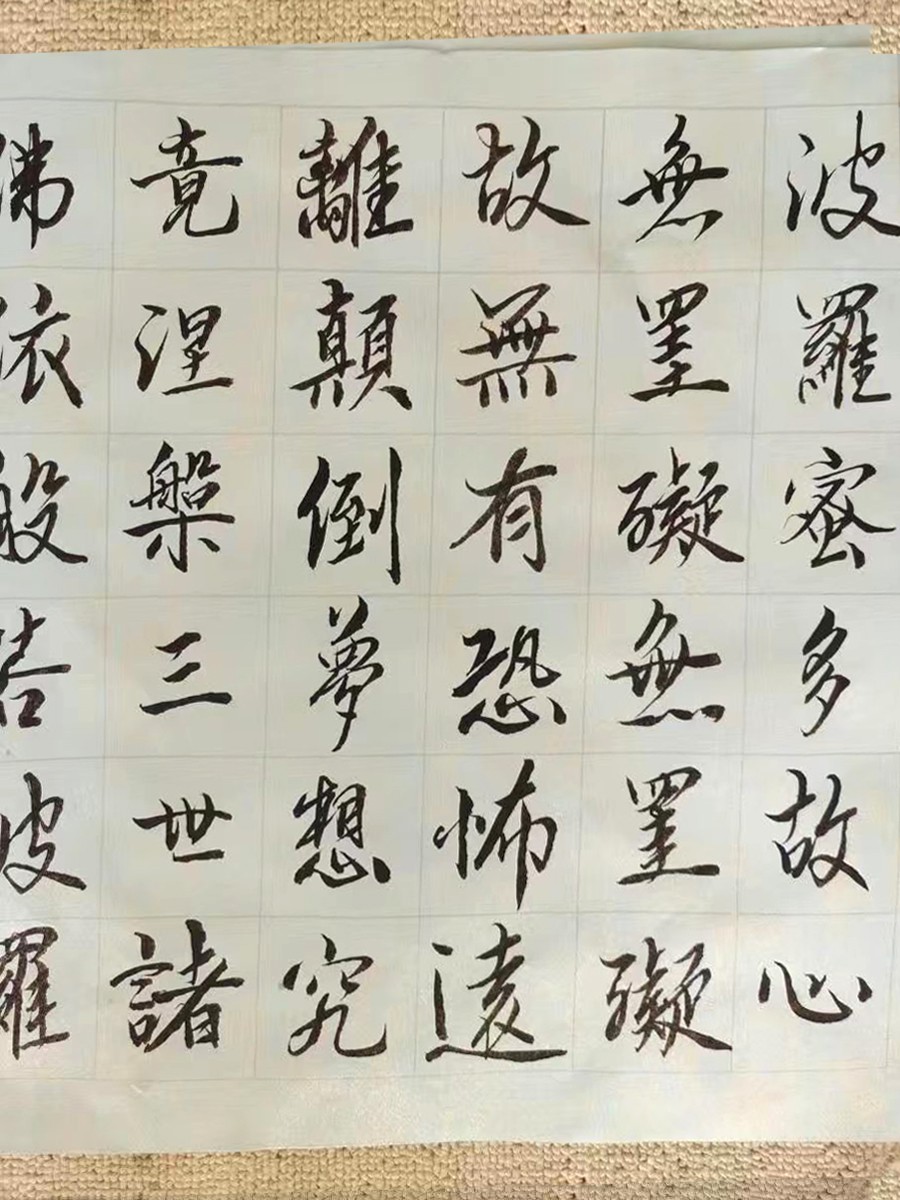 波羅蜜多故心
無罣礙無罣礙
故無有恐怖遠
離顛倒夢想究
竟涅槃三世諸
佛依般若波羅